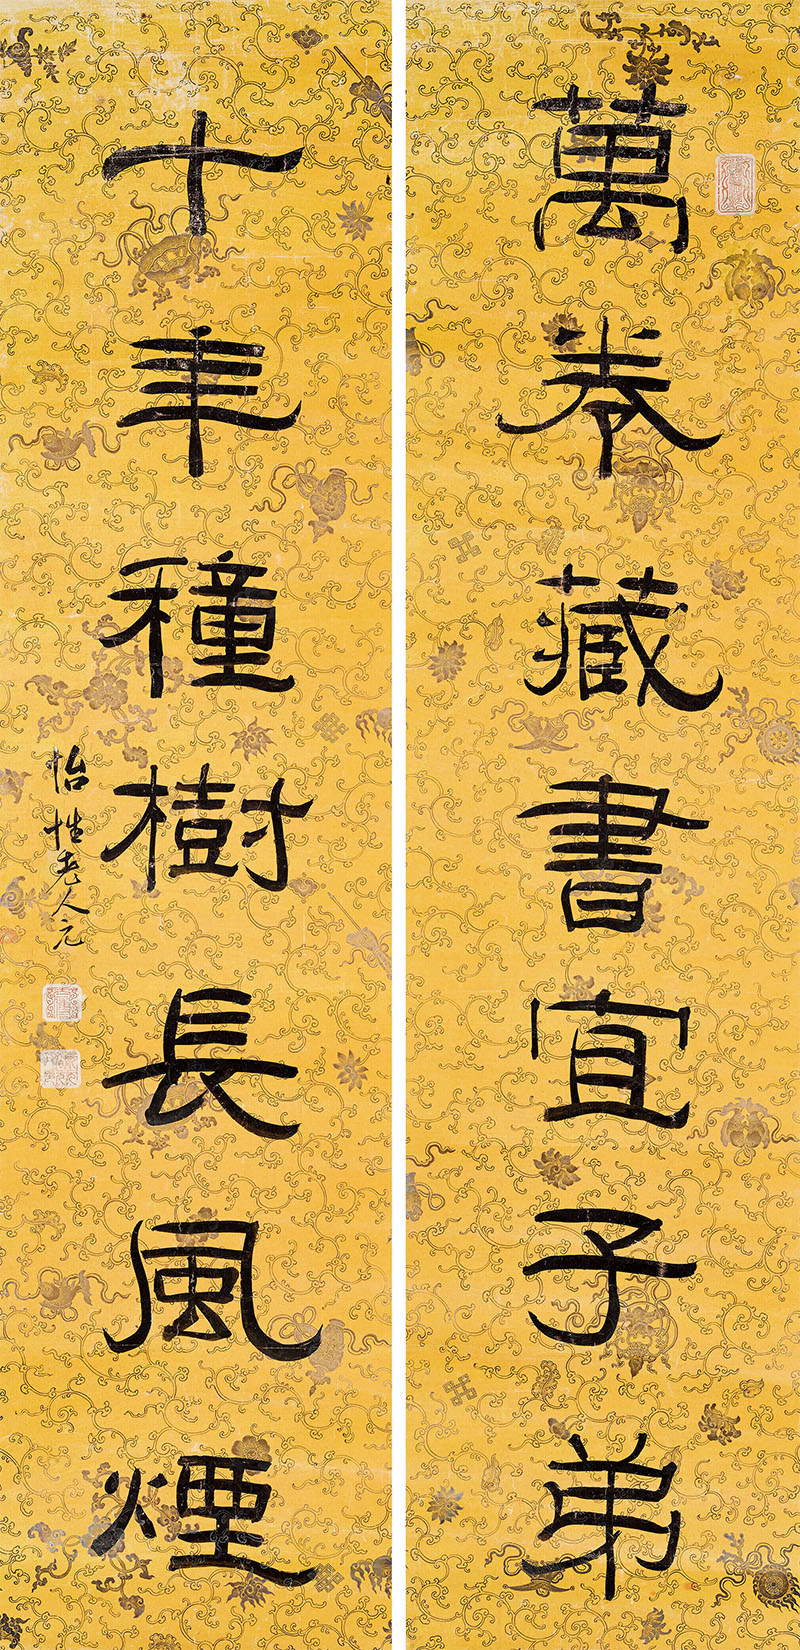 萬卷藏書宜子弟
十年種樹長風煙
怡性老人元